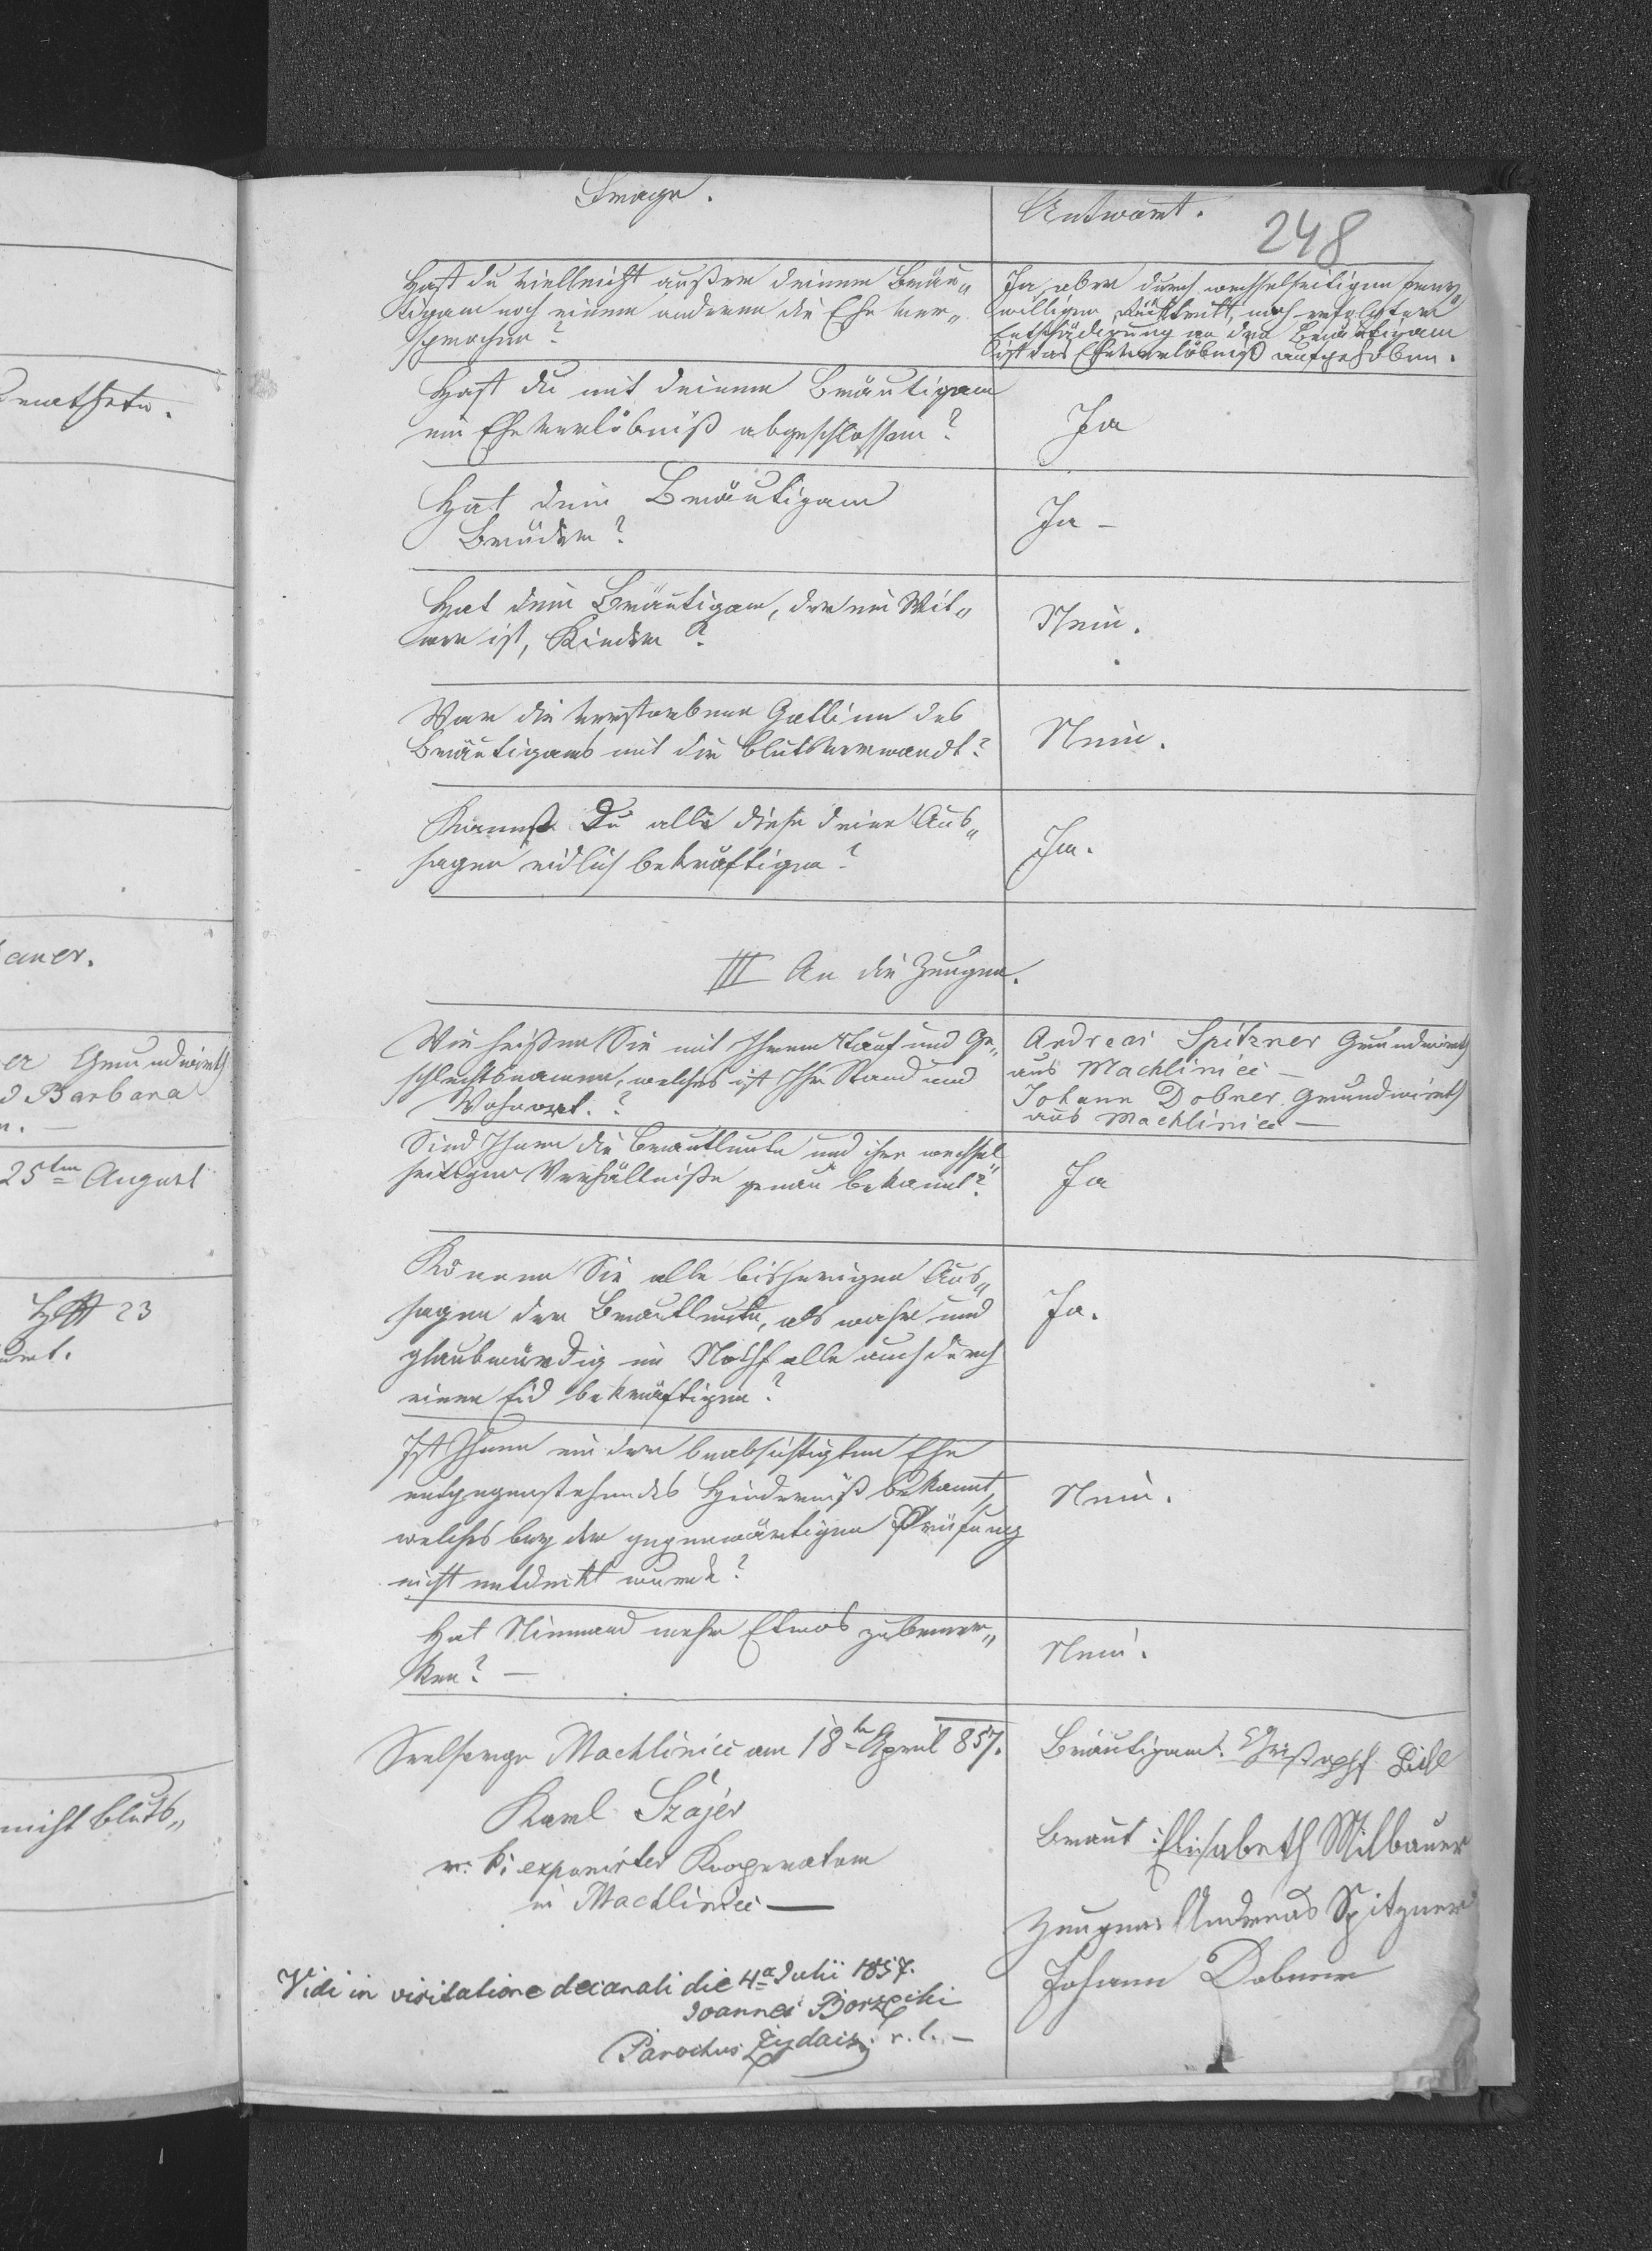 Frage.
Antwort.
248
Hast du vielleicht außer deinem Bräu„
tigam noch einem anderen die Ehe ver„
sprochen?
Ja, aber durch wechselseitigen frey„
willigen Rücktritt, nach erfolgter
Entschädigung an den Bräutigam
ist das Eheverlöbniß aufgehoben.
Hast du mit deinem Bräutigam
ein Eheverlöbniß abgeschlossen?
Ja
Hat dein Bräutigam
Brüder?
Ja –
Hat dein Bräutigam, der ein Wit„
wer ist, Kinder?
Nein.
War die verstorbene Gattinn des
Bräutigams mit dir blutsverwandt?
Nein.
Kannst Du alle diese deine Aus„
sagen eidlich bekräftigen?
Ja.
III An die Zeugen.
Wie heißen Sie mit Ihrem Tauf und Ge„
schlechtsnamen, welches ist Ihr Stand und
Wohnort?
Andreas Spitzner Grundwirth
aus Machlinice –
Johann Dobner Grundwirth
aus Machlinice –
Sind Ihnen die Brautleute und ihre wechsel„
seitigen Verhältniße genau bekannt?
Ja
Können Sie alle bisherigen Aus„
sagen der Brautleute, als wahr und
glaubwürdig im Nothfalle auch durch
einen Eid bekräftigen?
Ja.
Ist Ihnen ein der beabsichtigten Ehe
entgegenstehendes Hinderniß bekannt,
welches bey der gegenwärtigen Prüfung
nicht entdeckt wurde?
Nein.
Hat Niemand mehr Etwas zu bemer„
ken? –
Nein.
Seelsorge Machlinice am 18te April 857.
Karl Szajer
exponirter Kooperator
in Machlinice —
Bräutigam: Christoph
Braut: Elisabeth Milbauer
Zeugen: Andreas Spitzner
Johann Dobner
Vidi in visitatione decanali die 4a Julii 1857.
Joannes Borzęcki
Parochus r. l. –
25ten August
d Barbara
er Grundwirth
23
nicht bluts„